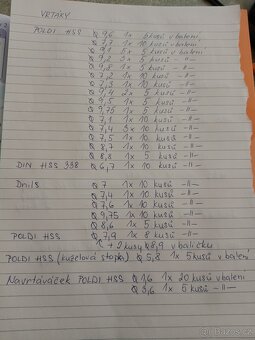 VRTÁKY
POLDI HSS Q 9,6 1x 5 kusů v balení
1x 10 kusů v balení
5x 5 kusů v balení
5 kusů -II-
5 kusů -II-
1x 10 kusů -II-
1x 10 kusů -II-
5 kusů -II-
Q 9,5 1x 5 kusů -II-
Q 9,75 1x 5 kusů -II-
Q 7,1 1x 10 kusů -II-
Q 7,4 10 kusů -II-
Q 7,5 1x 10 kusů -II-
Q 8,7 1x 10 kusů -II-
Q 8,8 1x 5 kusů -II-
DIN HSS 338 Q 6,7 1x 10 kusů -II-
Drills Q 7 1x 10 kusů -II-
Q 7,4 1x 10 kusů -II-
Q 7,6 1x 10 kusů -II-
Q 9,75 1x 10 kusů -II-
Q 8,6 1x 5 kusů -II-
POLDI HSS Q 7,9 1x 8 kusů -II-
+ 2 kusy Q 8,9 v balíčku
POLDI HSS (kuželová stopka) Q 5,8 1x 5 kusů v balení
Navrtáváček POLDI HSS Q 1,6 1x 20 kusů v balení
Q 3,6 1x 5 kusů -II-